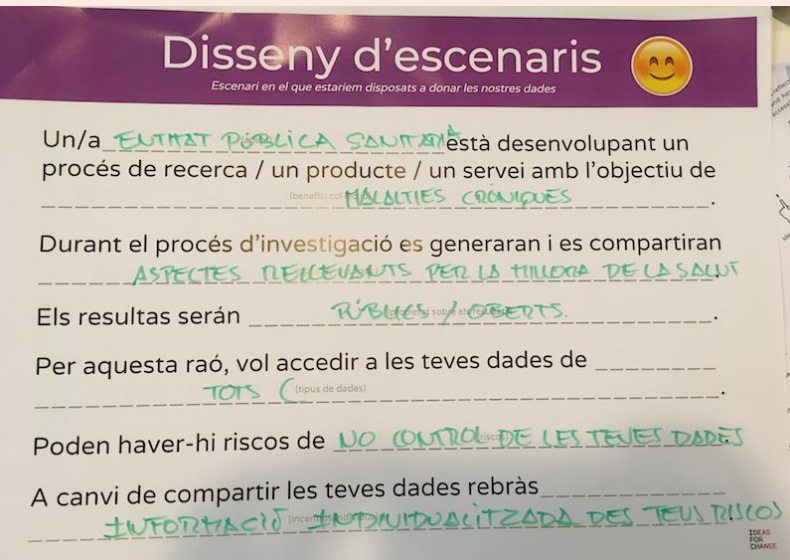 Disseny d'escenaris
Escenari en el que estaríem disposats a donar les nostres dades
Un/a ENTITAT PÚBLICA SANITARIA està desenvolupant un
procés de recerca / un producte / un servei amb l'objectiu de
(benefici col MALALTIES CRÒNIQUES.
Durant el procés d'investigació es generaran i es compartiran
ASPECTES RELLEVANTS PER LA MILLORA DE LA SALUT
Els resultas serán PÚBLICS / OBERTS.
Per aquesta raó, vol accedir a les teves dades de
TOTS ( (tipus de dades) .
Poden haver-hi riscos de NO CONTROL DE LES TEVES DADES
A canvi de compartir les teves dades rebràs
INFORMACIÓ INDIVIDUALITZADA DES TEUS RISCOS
IDEAS
FOR
CHANGE